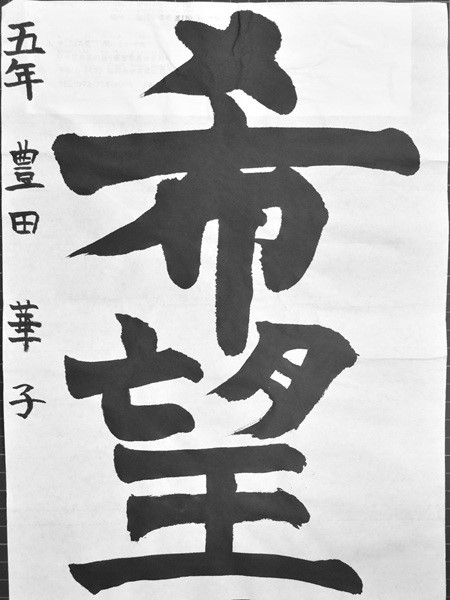 希望
五年 豊田 華子